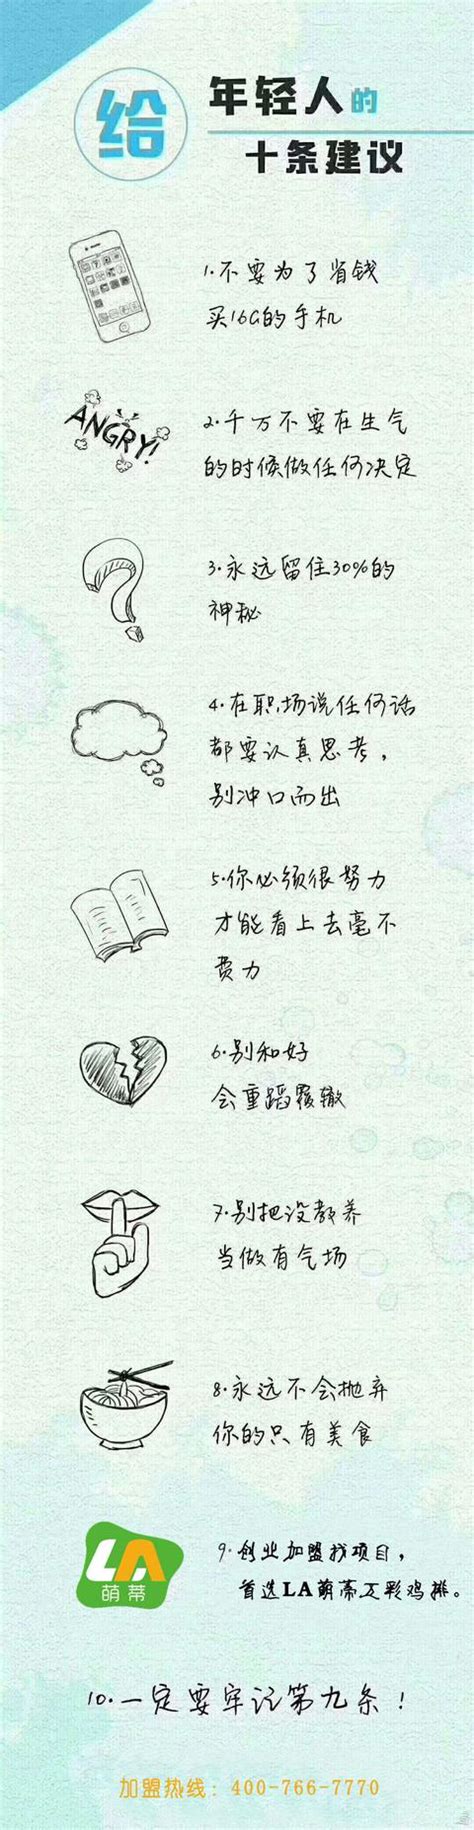 给
年轻人的
十条建议
1.不要为了省钱
买16G的手机
ANGRY!
2.千万不要在生气
的时候做任何决定
3.永远留住30%的
神秘
4.在职场说任何话
都要认真思考，
别冲口而出
5.你必须很努力
才能看上去毫不
费力
6.别和好
会重蹈覆辙
7.别把没教养
当做有气场
8.永远不会抛弃
你的只有美食
LA
萌蒂
9.创业加盟找项目，
首选LA萌蒂五彩鸡排。
10.一定要牢记第九条！
加盟热线：400-766-7770